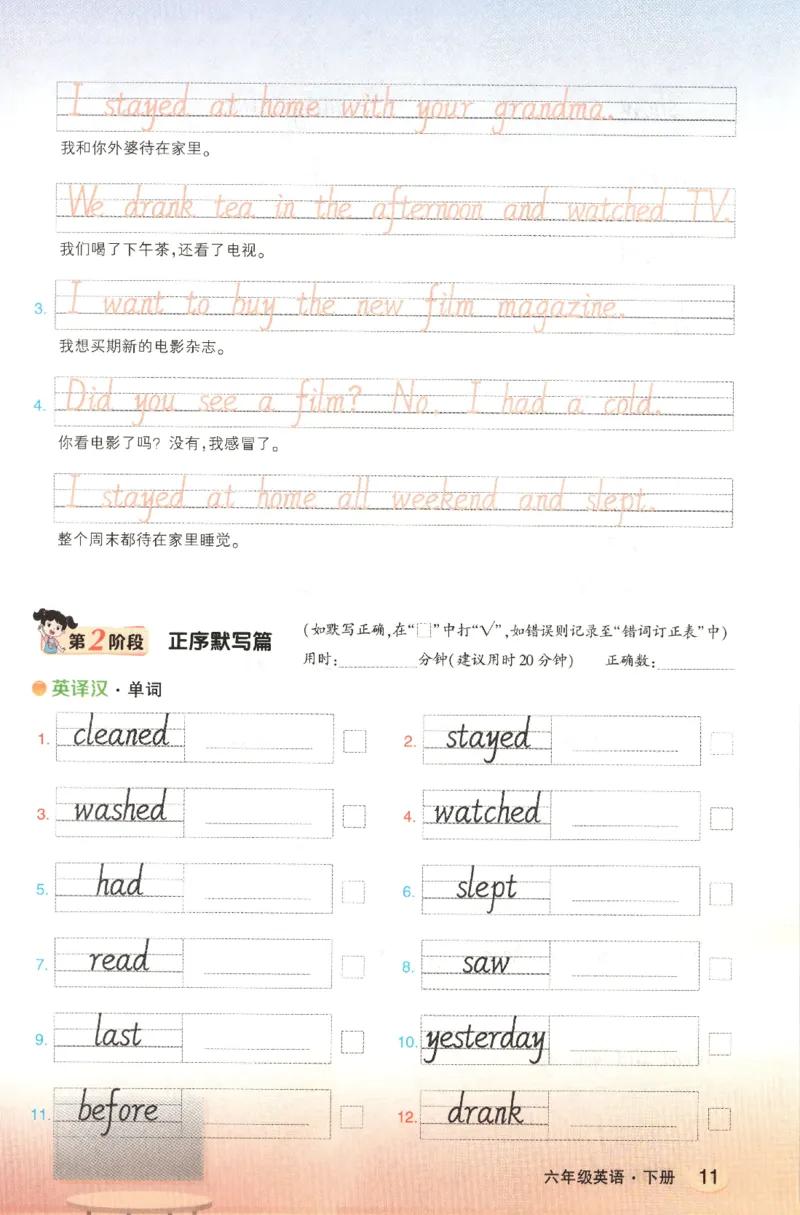 I stayed at home with your grandma.
我和你外婆待在家里。
We drank tea in the afternoon and watched TV.
我们喝了下午茶,还看了电视。
3. I want to buy the new film magazine.
我想买期新的电影杂志。
4. Did you see a film? No. I had a cold.
你看电影了吗? 没有,我感冒了。
I stayed at home all weekend and slept.
整个周末都待在家里睡觉。
第2阶段 正序默写篇
(如默写正确,在“□”中打“√”,如错误则记录至“错词订正表”中)
用时:________分钟(建议用时20分钟) 正确数:________
英译汉·单词
1. cleaned
2. stayed
3. washed
4. watched
5. had
6. slept
7. read
8. saw
9. last
10. yesterday
11. before
12. drank
六年级英语·下册 11